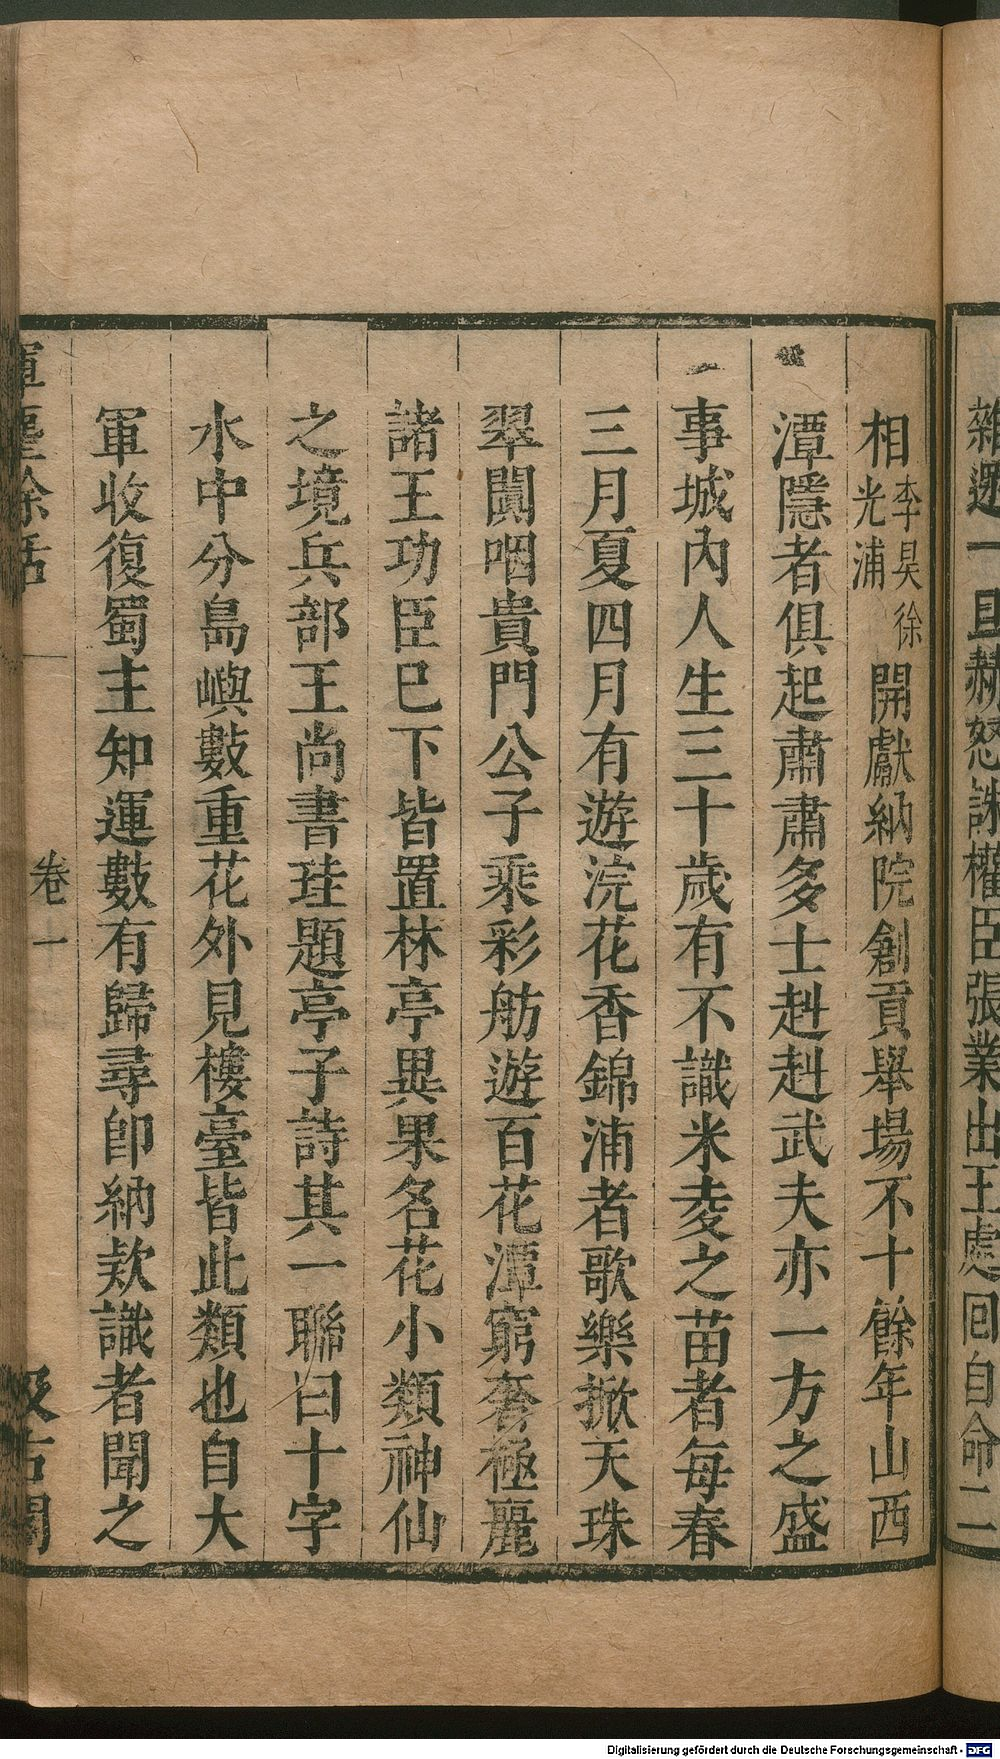 雜選一旦赫怒誅權臣張業出王處回自命二
相李昊徐光浦開獻納院創貢舉場不十餘年山西
潭隱者俱起肅肅多士赳赳武夫亦一方之盛
事城內人生三十歲有不識米麦之苗者每春
三月夏四月有遊浣花香錦浦者歌樂掀天珠
翠闐咽貴門公子乘彩舫遊百花潭窮奢極麗
諸王功臣已下皆置林亭異果名花小類神仙
之境兵部王尚書珪題亭子詩其一聯曰十字
水中分島嶼數重花外見樓臺皆此類也自大
軍收復蜀主知運數有歸尋卽納欵識者聞之
卷一
汲古閣
Digitalisierung gefördert durch die Deutsche Forschungsgemeinschaft - DFG